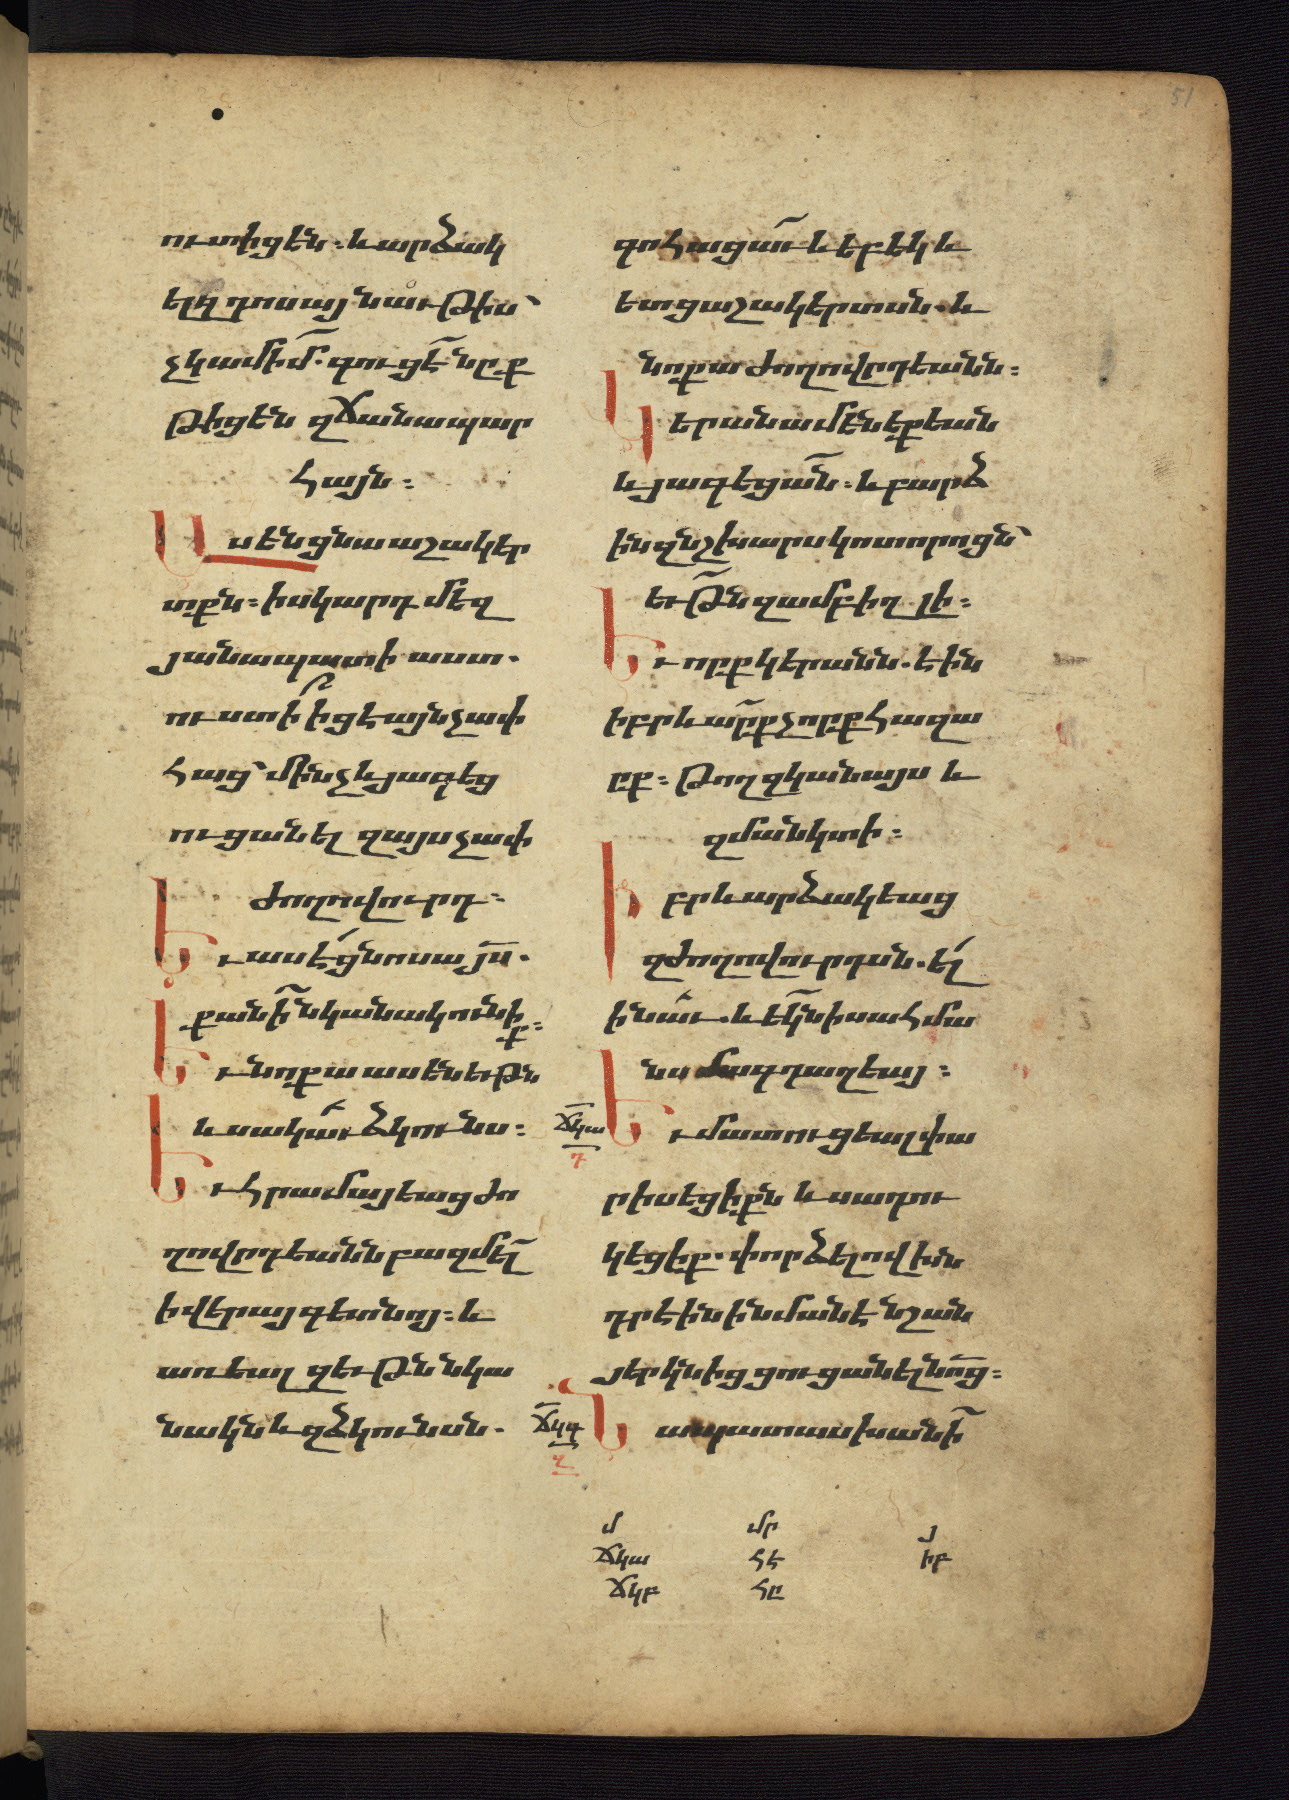 ուտիցեն։ և արձակ
ել զդոսա յնաւթիս՝
չկամիմ. գուցէ նըք
թիցեն զճանապար
հայն։
Ասեն ցնա աշակեր
տքն։ իսկ արդ մեզ
յանապատի աստ.
ուստի իցէ այնչափ
հաց՝ մինչև յագեց
ուցանել զայսչափ
ժողովուրդ։
Եւ ասէ ցնոսա յս.
քանի նկանակ ունիք։
Եւ նոքա ասեն եւթն
և սակաւ ձկունս։
Եւ հրամայեաց ժո
ղովրդեանն բազմել
ի վերայ գետնոյ։ և
առեալ զեւթն նկա
նակն և զձկունսն.
գոհացաւ և եբեկ և
ետ ցաշակերտսն. և
նոքա ժողովըրդեանն։
Կերան ամենեքեան
և յագեցան։ և բարձ
ին զնշխարս կոտորոցն՝
եւթն զամբիղ լի։
Եւ որք կերանն. էին
իբրև արք չորք հազա
րք։ թող զկանայս և
զմանկտի։
Իբրև արձակեաց
զժողովուրդսն. ել
ի նաւ. և եկն ի սահմա
նս մագդաղեայ։
Եւ մատուցեալ փա
րիսեցիքն և սադու
կեցիք. փորձելով խն
դրէին ի նմանէ նշան
յերկնից ցուցանել նոց։
Նա պատասխանի
ճկա
դ
ճկգ
զ
մ մր յ
ճկա հէ իբ
ճկբ հը
51